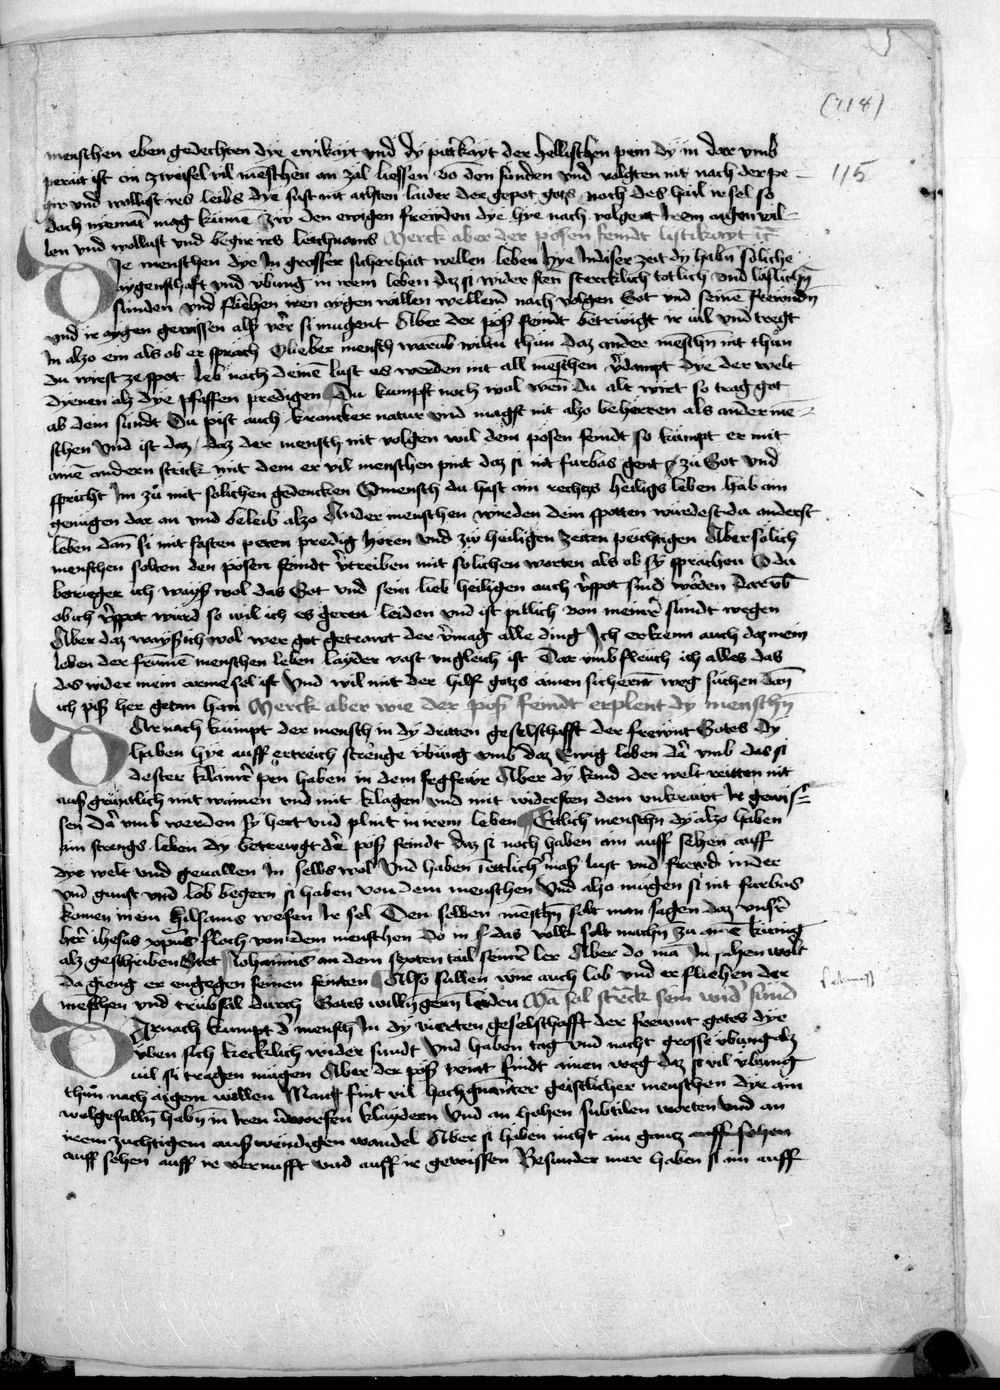 (118)
115
menschen eben gedechten dye ewikayt vnd dy pitt'kayt der hellischen pein dy in dar vmb
perait ist on zweifel vil menschen an zal liessen vō den sunden vnd volgten nit nach der pe-
gir vnd wollust irs leibs dye sust nit achten laider der gepot gots noch des hail ir sel so
doch niemāt mag kūmē zw den ewigen frewden dye hye nach volgent irem aigen wil-
len vnd wollust vnd begir irs leichnams Merck aber der posen feindt listikayt ꝛc
Die menschen dye in grosser sicherhait wellen leben hye in diser zeit dy habn̄ soliche
aygenschafft vnd vbung in irem leben daz si wider sten stercklich totlich vnd laslichn̄
sunden vnd fliehen iren aygen willen wellend nach volgen Got vnd seinē frewndn̄
vnd ir aygen gewissen als v'r si mugent Aber der pöß feindt betriwgt ir vil vnd tregt
in alzo ein als ob er sprach O lieber mensch warūb wiltu thun daz ander menschn̄ nit thun
du wirst ze spot leb nach deinē lust es werden nit all menschen v'dampt dye der welt
dyenen alz dye pfaffen predigen Du kumpst noch wol wen du alt wirt so trag got
ab dein sundt Du pist auch krancker natur vnd magst nit alzo beherren als ander mē-
schen Vnd ist daz daz der mensch nit volgen wil dem pösen feindt so kumpt er mit
ainē andern strick mit dem er vil menschen pint daz si nit furbas gent zu Got vnd
spricht im zu mit solichen gedencken O mensch du hast ain rechtz heiligs leben hab ain
genügen dar an vnd beleib alzo Ander menschen wurden dein spotten wurdestu anderst
leben dan si mit fasten peten predig horen vnd zw heiligen zeiten peichtigen Aber solich
menschen solten den posen feindt v'treiben mit solichen worten als ob sy sprachen O du
betrieger ich wayß wol das Got vnd sein lieb heiligen auch v'spot sind worden Dar vb
ob ich v'spot wurd so wil ich es geren leiden vnd ist pillich von meiner sundt wegen
Aber daz wayß ich wol wer got getrawt der v'mag alle ding Ich erkenn auch daz mein
leben der frumē menschen leben layder vast vngleich ist Dar vmb fleuch ich alles das
das wider mein arme sel ist Vnd wil mit der hilf gotzs ainen sichern weg suchen dan
ich piß her getan han Merck aber wie der pöß feindt erplent dy menschn̄
Darnach kumpt der mensch in dy dritten geselschafft der frewnt Gotes Dy
haben hye auff ertreich strenge vbung vmb daz Ewig leben dar vmb das si
dester klainer pen haben in dem fegfewr Aber dy kind der welt reitten nit
auß gruntlich mit wainen vnd mit klagen vnd mit widersten dem vnkrawt ir gewis-
sen dar vmb werden sy hert vnd plint in irem leben Ettlich menschn̄ dy alzo haben
ain strengs leben dy betrewgt der pöß feindt daz si noch haben ain auff sehen auff
dye welt vnd geuallen in selbs wol Vnd haben ettlich maß lust vnd frewd in der
vnd gunst vnd lob begern si haben von dem menschen Vnd alzo mugen si nit furbas
komen in ein hilsams wesen ir sel Den selben menschn̄ solt man sagen daz vnser
her ihesus xp̄us floch von dem menschen do in das volk solt machn̄ zu ainē kunig
alz geschriben stet Johannis an dem sexten tail seiner ler Aber do mā in fahen wolt
da gieng er engegen seinen feinten Also sullen wir auch lob vnd er fliehen der
menschen vnd trubsal durch Gotes willn̄ gern leiden Mā sol streck sein wider sünd
Darnach kumpt der mensch in dy vierten geselschafft der frewnt gotes dye
vben sich kecklich wider sundt Vnd haben tag vnd nacht grosse vbung alz
vil si tragen mugen Aber der pöß veint findt ainen weg daz si vil vbung
thun nach aigem willen Manig sint vil hochgnanter geistlicher menschen dye ain
wolgefalln̄ habn̄ in iren v'worfen klaydern Vnd an hohen subtilen worten vnd an
irem zuchtigem außwendigen wandel Aber si haben nicht ain gantz auff sehen
auff sehen auff ir vernufft vnd auff ir gewissen Besunder mer haben si ain auff